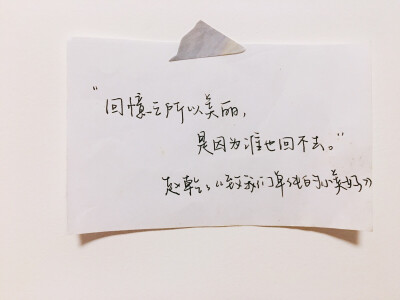 “回憶之所以美丽,
是因为谁也回不去。”
赵乾乾《致我们单纯的小美好》